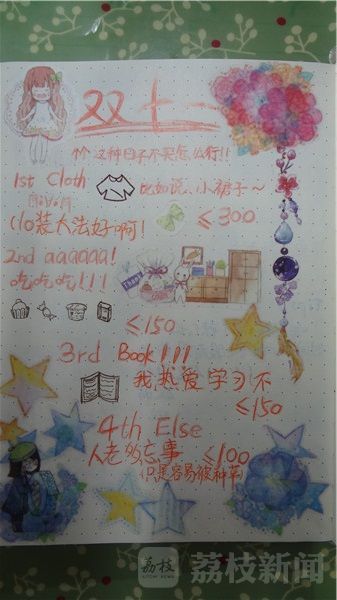 双十一
这种日子不买怎么行!!
1st Cloth 比如说、小裙子~
lo装大法好啊! ≤300
2nd aaaaaa!
吃吃吃!!!
Thanks
≤150
3rd Book!!!
我热爱学习不
≤150
4th Else
人老多忘事 ≤100
(只是容易被种草)
荔枝 荔枝新闻
LITCHI NEWS